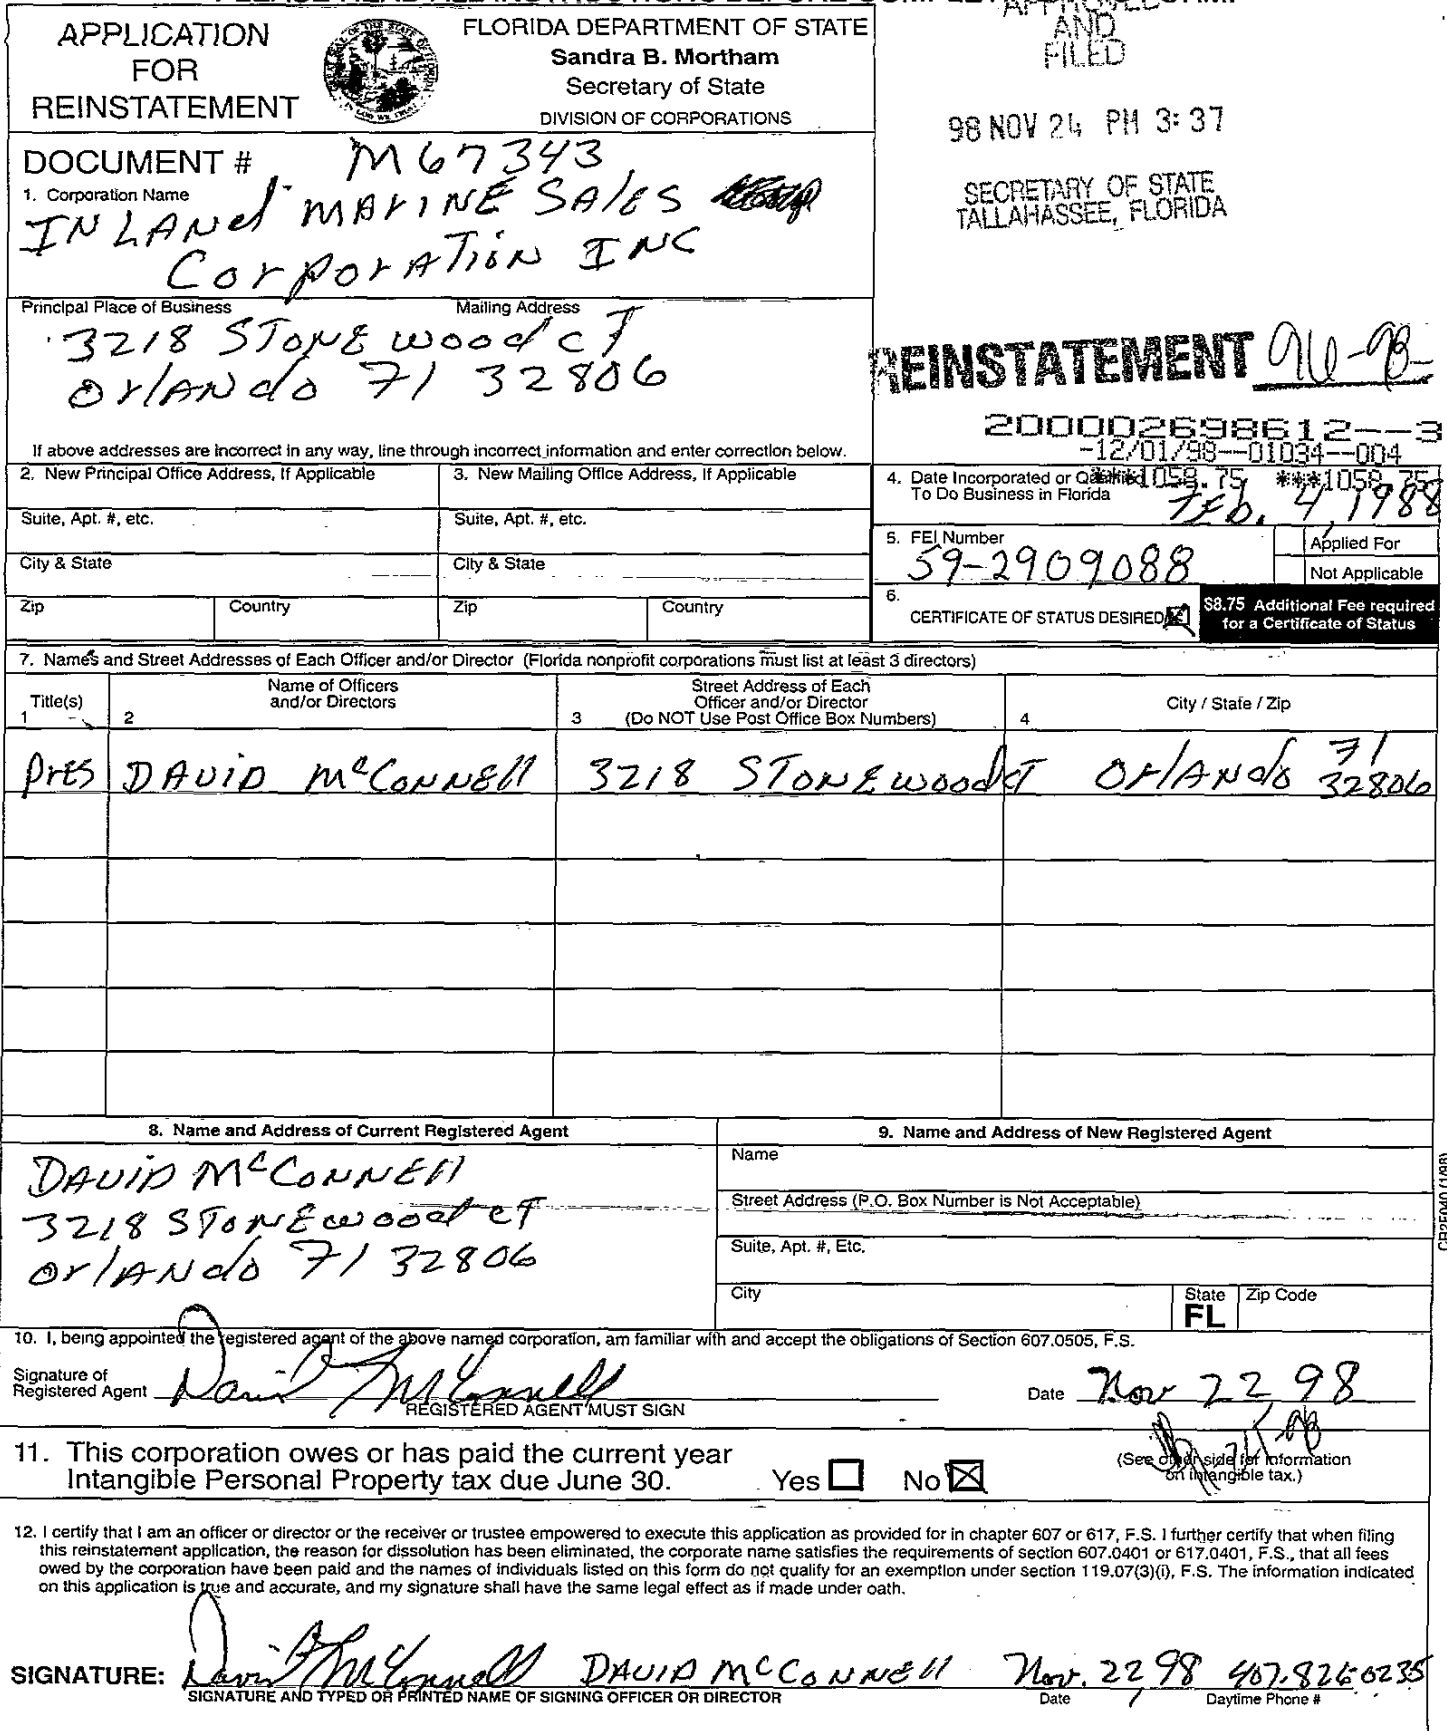 APPLICATION
FOR
REINSTATEMENT
FLORIDA DEPARTMENT OF STATE
Sandra B. Mortham
Secretary of State
DIVISION OF CORPORATIONS
AND
FILED
98 NOV 24 PM 3:37
SECRETARY OF STATE
TALLAHASSEE, FLORIDA
DOCUMENT # M67343
1. Corporation Name
INLANd MArINE SAlES
CorporATiON INC
Principal Place of Business Mailing Address
3218 STONEwood CT
OrlANdo Fl 32806
REINSTATEMENT 96-98
200002698612--3
-12/01/98--01034--004
***1058.75 ***1058.75
If above addresses are incorrect in any way, line through incorrect information and enter correction below.
2. New Principal Office Address, If Applicable
3. New Mailing Office Address, If Applicable
4. Date Incorporated or Qualified
To Do Business in Florida
Feb. 4, 1988
Suite, Apt. #, etc. Suite, Apt. #, etc.
5. FEI Number
59-2909088
Applied For
Not Applicable
City & State City & State
Zip Country Zip Country
6.
CERTIFICATE OF STATUS DESIRED
$8.75 Additional Fee required
for a Certificate of Status
7. Names and Street Addresses of Each Officer and/or Director (Florida nonprofit corporations must list at least 3 directors)
Title(s)
1
Name of Officers
and/or Directors
2
Street Address of Each
Officer and/or Director
3 (Do NOT Use Post Office Box Numbers)
City / State / Zip
4
PrES DAVID McCONNEll 3218 STONEwood CT OrlANdo Fl 32806
8. Name and Address of Current Registered Agent
DAVID McCONNEll
3218 STONEwood CT
OrlANdo Fl 32806
9. Name and Address of New Registered Agent
Name
Street Address (P.O. Box Number is Not Acceptable)
Suite, Apt. #, Etc.
City State FL Zip Code
CR2E040 (1/98)
10. I, being appointed the registered agent of the above named corporation, am familiar with and accept the obligations of Section 607.0505, F.S.
Signature of
Registered Agent David McConnell Date Nov 22, 98
REGISTERED AGENT MUST SIGN
11. This corporation owes or has paid the current year
Intangible Personal Property tax due June 30. Yes No
(See other side for information
on intangible tax.)
12. I certify that I am an officer or director or the receiver or trustee empowered to execute this application as provided for in chapter 607 or 617, F.S. I further certify that when filing
this reinstatement application, the reason for dissolution has been eliminated, the corporate name satisfies the requirements of section 607.0401 or 617.0401, F.S., that all fees
owed by the corporation have been paid and the names of individuals listed on this form do not qualify for an exemption under section 119.07(3)(i), F.S. The information indicated
on this application is true and accurate, and my signature shall have the same legal effect as if made under oath.
SIGNATURE: David McConnell DAVID McCONNEll Nov. 22, 98 407.826-0235
SIGNATURE AND TYPED OR PRINTED NAME OF SIGNING OFFICER OR DIRECTOR Date Daytime Phone #